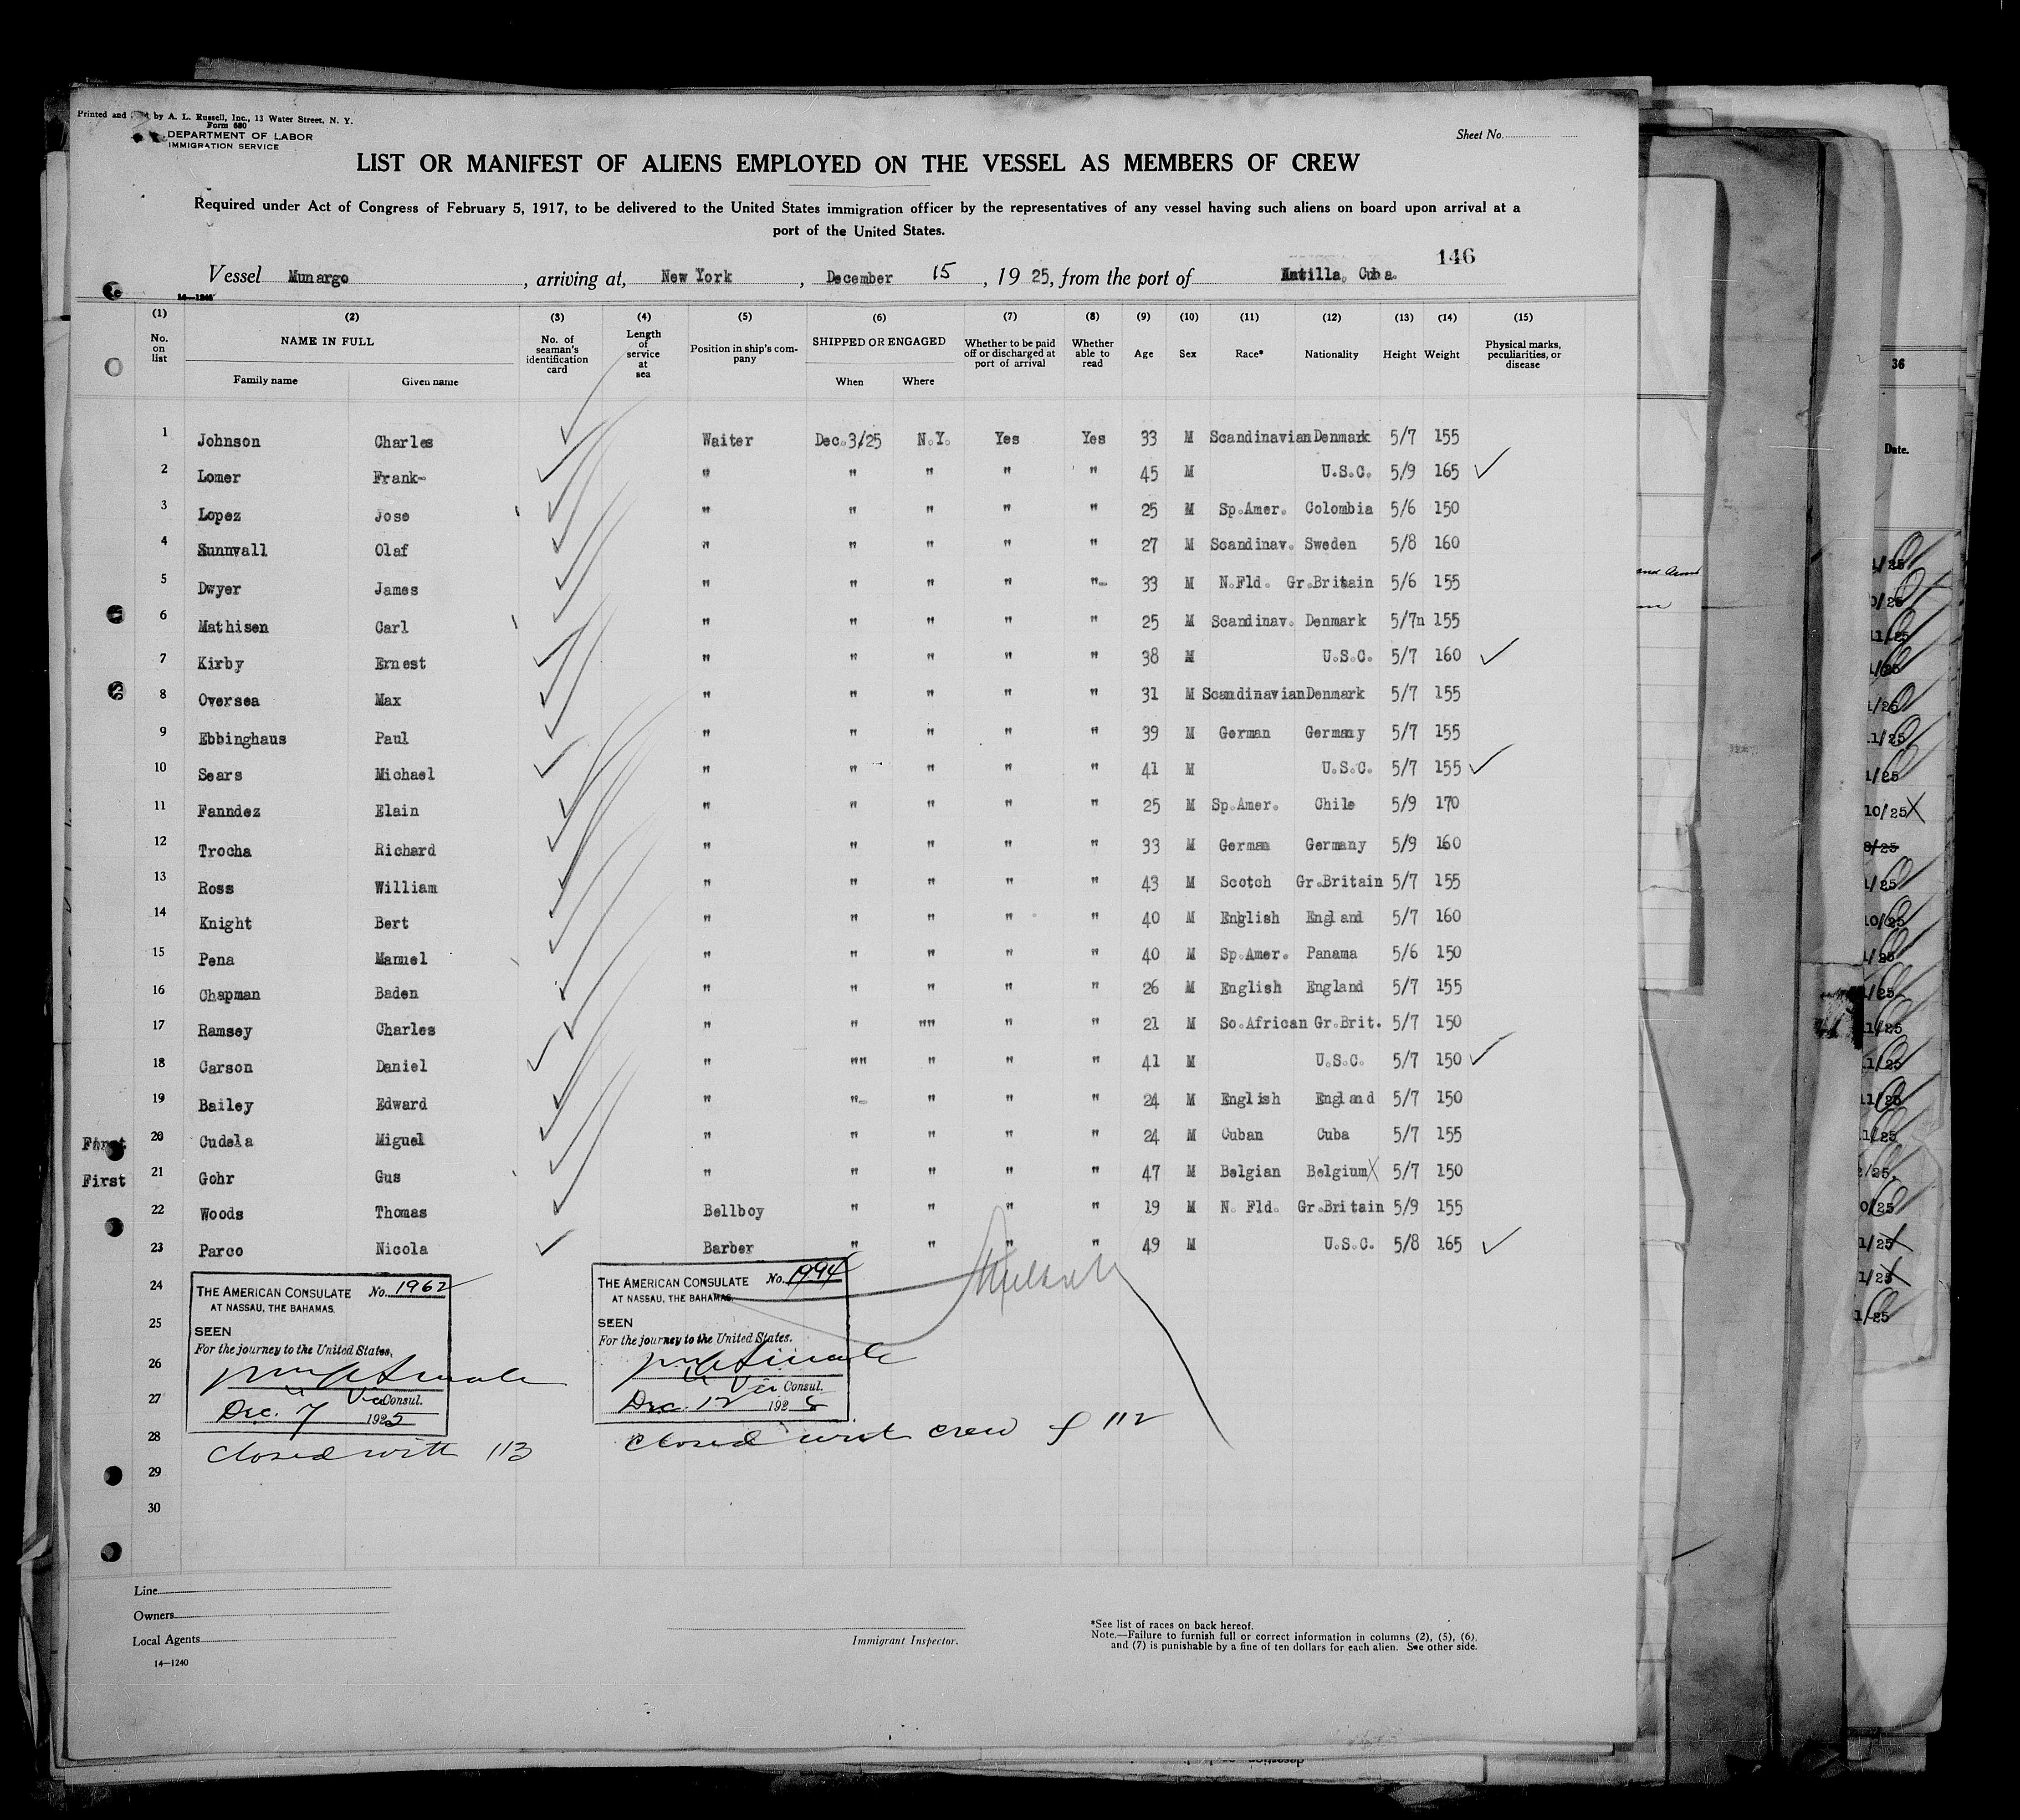 Printed and by A. L. Russell, Inc., 13 Water Street, N. Y.
Form 680
DEPARTMENT OF LABOR
IMMIGRATION SERVICE
Sheet No.
LIST OR MANIFEST OF ALIENS EMPLOYED ON THE VESSEL AS MEMBERS OF CREW
Required under Act of Congress of February 5, 1917, to be delivered to the United States immigration officer by the representatives of any vessel having such aliens on board upon arrival at a
port of the United States.
146
Vessel Munargo, arriving at, New York, December 15, 1925, from the port of Antilla, Cuba.
14—1240
(1) (2) (3) (4) (5) (6) (7) (8) (9) (10) (11) (12) (13) (14) (15)
No. on list NAME IN FULL Family name Given name No. of seaman's identification card Length of service at sea Position in ship's company SHIPPED OR ENGAGED When Where Whether to be paid off or discharged at port of arrival Whether able to read Age Sex Race* Nationality Height Weight Physical marks, peculiarities, or disease
1 Johnson Charles Waiter Dec.3/25 N.Y. Yes Yes 33 M Scandinavian Denmark 5/7 155
2 Lomer Frank- " " " " " 45 M U.S.C. 5/9 165
3 Lopez Jose " " " " " 25 M Sp.Amer. Colombia 5/6 150
4 Sunnvall Olaf " " " " " 27 M Scandinav. Sweden 5/8 160
5 Dwyer James " " " " "- 33 M N.Fld. Gr.Britain 5/6 155
6 Mathisen Carl " " " " " 25 M Scandinav. Denmark 5/7n 155
7 Kirby Ernest " " " " " 38 M U.S.C. 5/7 160
8 Oversea Max " " " " " 31 M Scandinavian Denmark 5/7 155
9 Ebbinghaus Paul " " " " " 39 M German Germany 5/7 155
10 Sears Michael " " " " " 41 M U.S.C. 5/7 155
11 Fanndez Elain " " " " " 25 M Sp.Amer. Chile 5/9 170
12 Trocha Richard " " " " " 33 M German Germany 5/9 160
13 Ross William " " " " " 43 M Scotch Gr.Britain 5/7 155
14 Knight Bert " " " " " 40 M English England 5/7 160
15 Pena Manuel " " " " " 40 M Sp.Amer. Panama 5/6 150
16 Chapman Baden " " " " " 26 M English England 5/7 155
17 Ramsey Charles " " "" " " 21 M So.African Gr.Brit. 5/7 150
18 Carson Daniel " "" " " " 41 M U.S.C. 5/7 150
19 Bailey Edward " "- " " " 24 M English England 5/7 150
First 20 Cudela Miguel " " " " " 24 M Cuban Cuba 5/7 155
First 21 Gohr Gus " " " " " 47 M Belgian Belgium 5/7 150
22 Woods Thomas Bellboy " " " " 19 M N. Fld. Gr.Britain 5/9 155
23 Parco Nicola Barber " " " " 49 M U.S.C. 5/8 165
24
25
26
27
28
29
30
THE AMERICAN CONSULATE No. 1962
AT NASSAU, THE BAHAMAS.
SEEN
For the journey to the United States,
Vice Consul.
Dec. 7 1925
Closed with 113
THE AMERICAN CONSULATE No. 1994
AT NASSAU, THE BAHAMAS.
SEEN
For the journey to the United States.
Vice Consul.
Dec. 12 1925
Closed with crew of 112
Line
Owners
Local Agents
14—1240
Immigrant Inspector.
*See list of races on back hereof.
Note.—Failure to furnish full or correct information in columns (2), (5), (6),
and (7) is punishable by a fine of ten dollars for each alien. See other side.
36
Date.